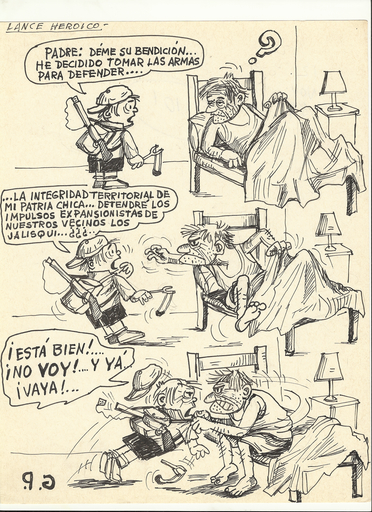 LANCE HEROICO.-
PADRE: DÉME SU BENDICIÓN...
HE DECIDIDO TOMAR LAS ARMAS
PARA DEFENDER....
?
...LA INTEGRIDAD TERRITORIAL DE
MI PATRIA CHICA... DETENDRÉ LOS
IMPULSOS EXPANSIONISTAS DE
NUESTROS VECINOS LOS
JALISQUI...¿¿¿..
¡ESTÁ BIEN!....
¡NO VOY!... Y YÁ!
¡VAYA!...
G.P.